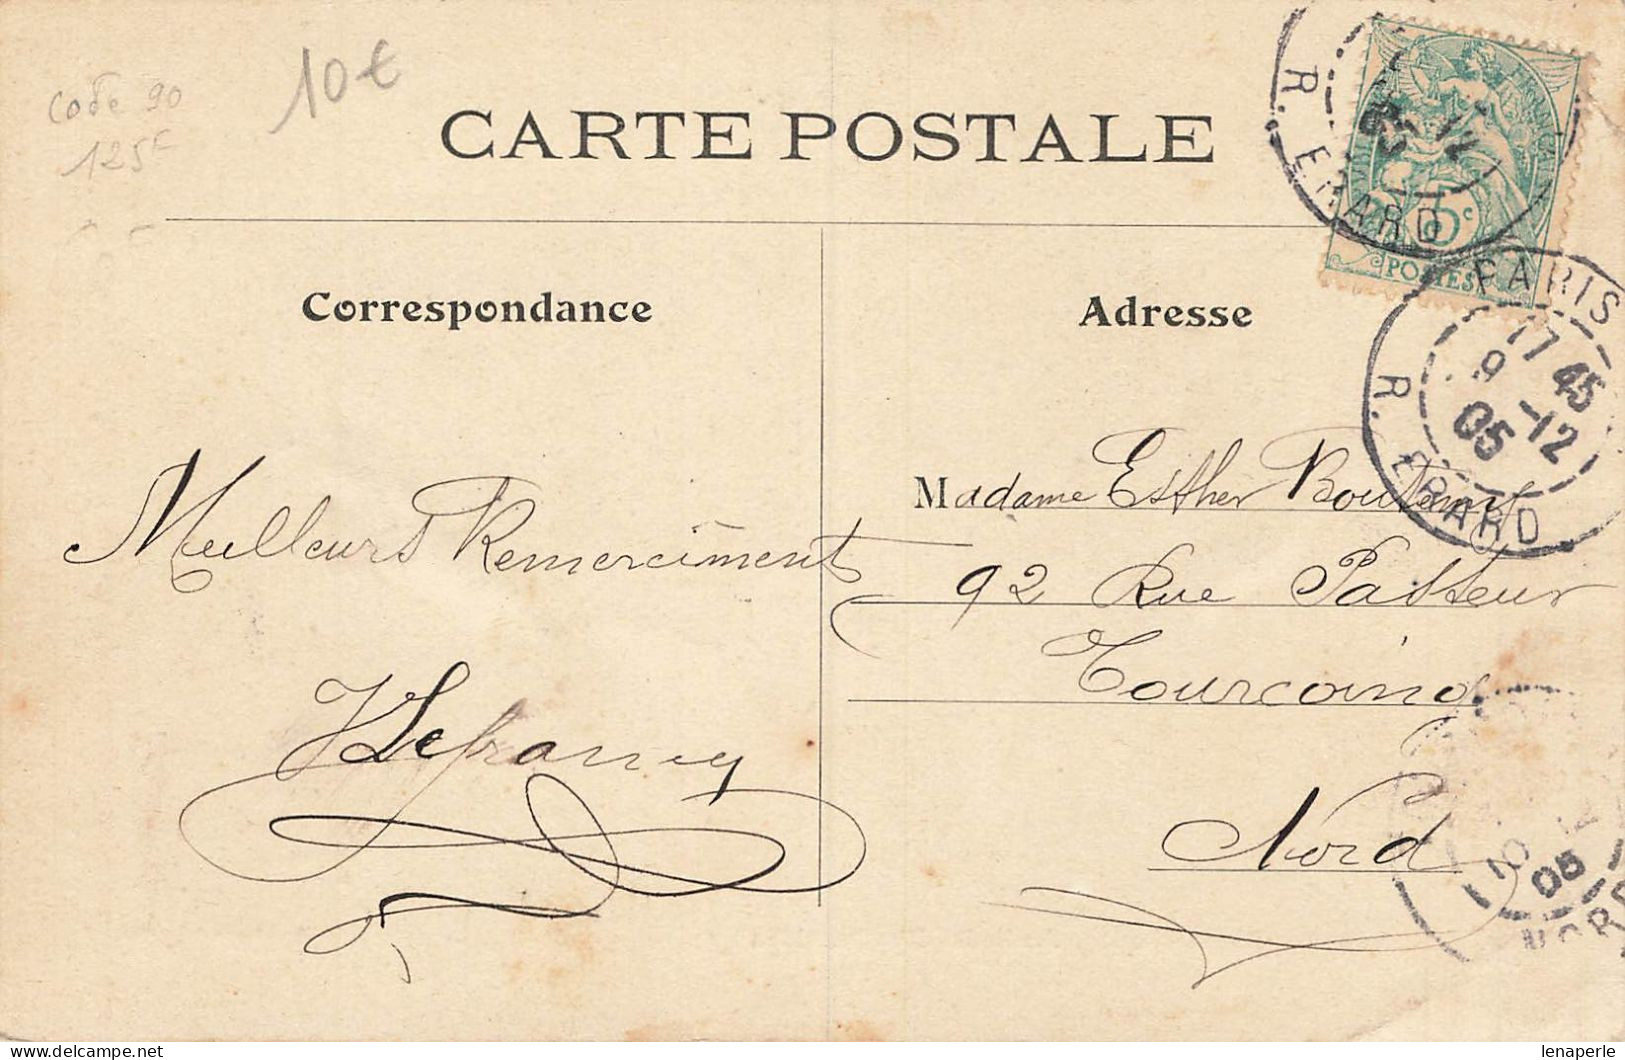 code 90
125F
10€
CARTE POSTALE
R. ERARD
RÉPUBLIQUE FRANÇAISE
5c
POSTES
PARIS
17 45
9 -12
05
R. ERARD
Correspondance
Adresse
Meilleurs Remerciment
Madame Esther Boutemy
92 Rue Pasteur
Tourcoing
Nord
10 12
05
NORD
lenaperle